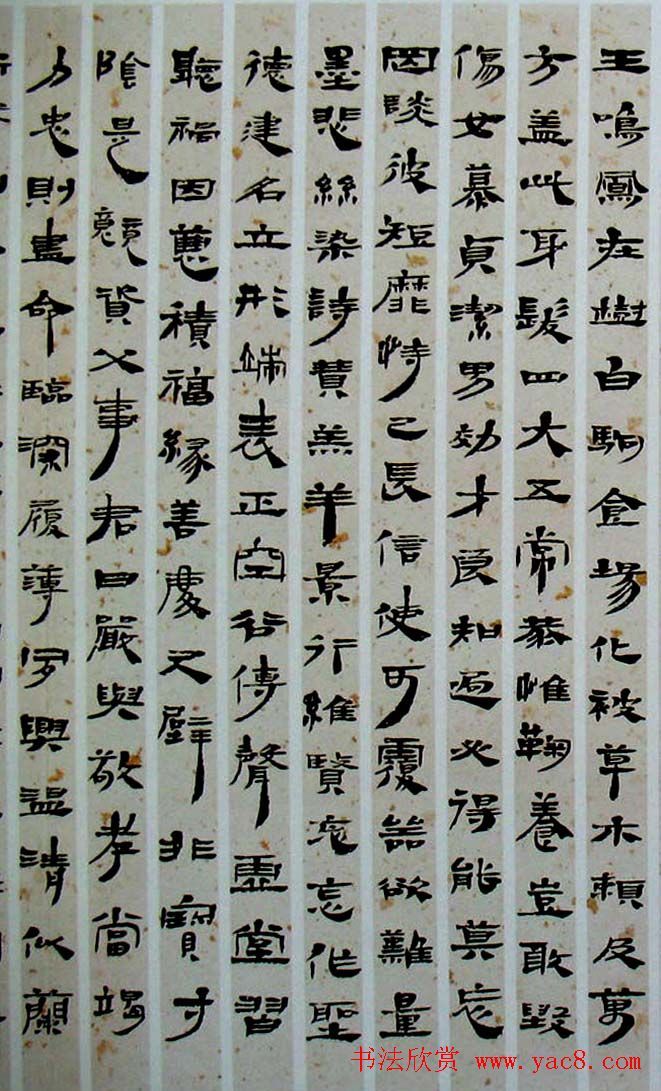 王鳴鳳在樹白駒食場化被草木賴及萬
方蓋此身髮四大五常恭惟鞠養豈敢毀
傷女慕貞潔男効才良知過必得能莫忘
罔談彼短靡恃己長信使可覆器欲難量
墨悲絲染詩賛羔羊景行維賢克念作聖
德建名立形端表正空谷傳聲虛堂習
聽禍因惡積福緣善慶尺璧非寶寸
陰是競資父事君曰嚴與敬孝當竭
力忠則盡命臨深履薄夙興温清似蘭
书法欣赏 www.yac8.com